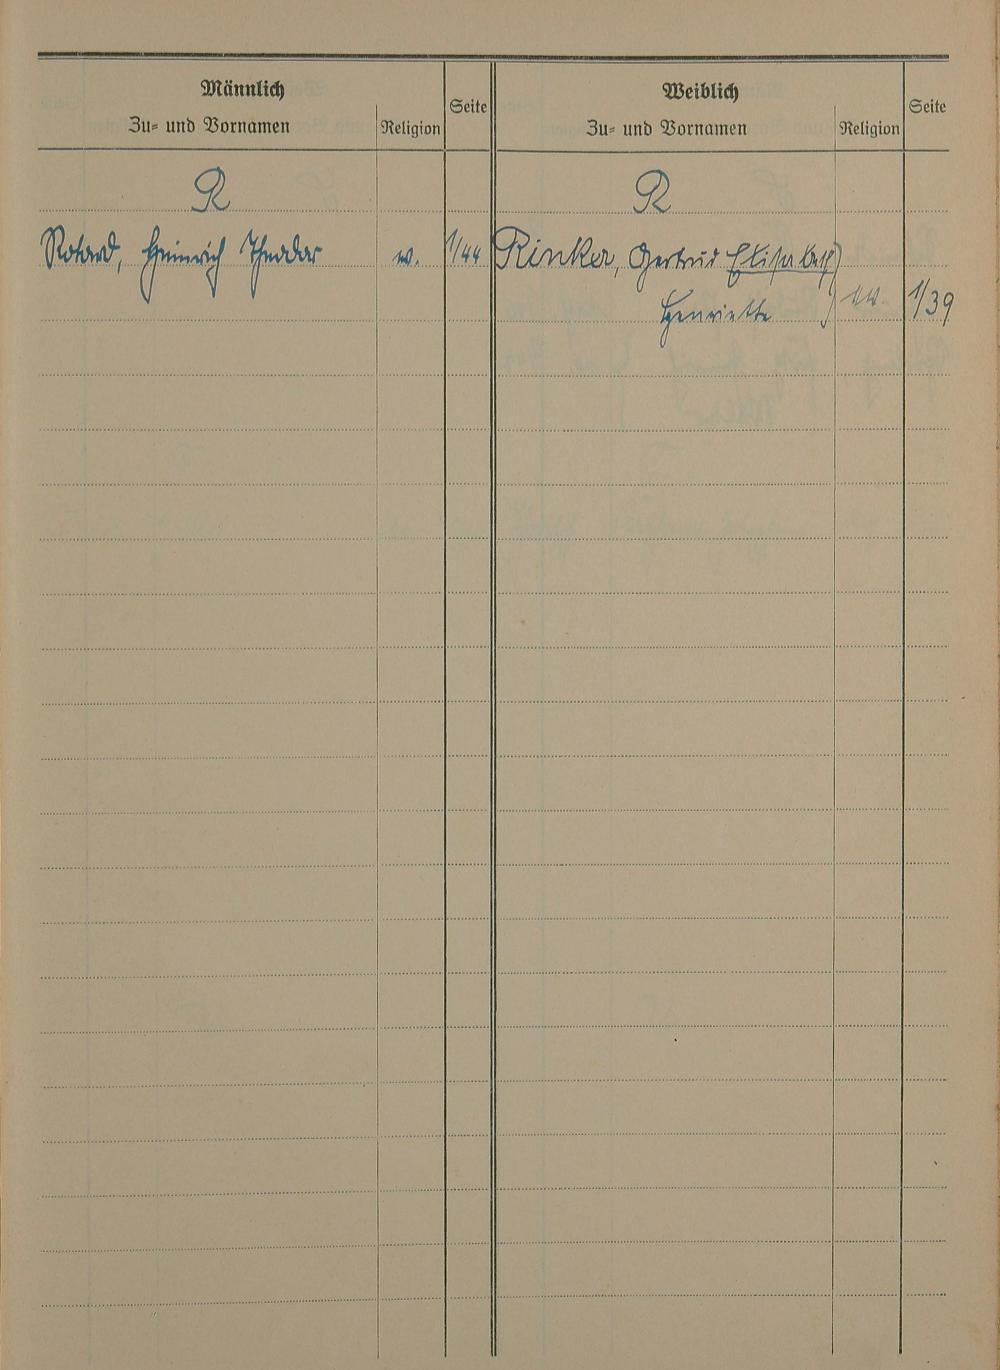 Männlich
Zu- und Vornamen
Religion
Seite
Weiblich
Zu- und Vornamen
Religion
Seite
R
R
Heinrich Theodor 1/44
Rinker, Gertrud Elisabeth
Henriette 1/39